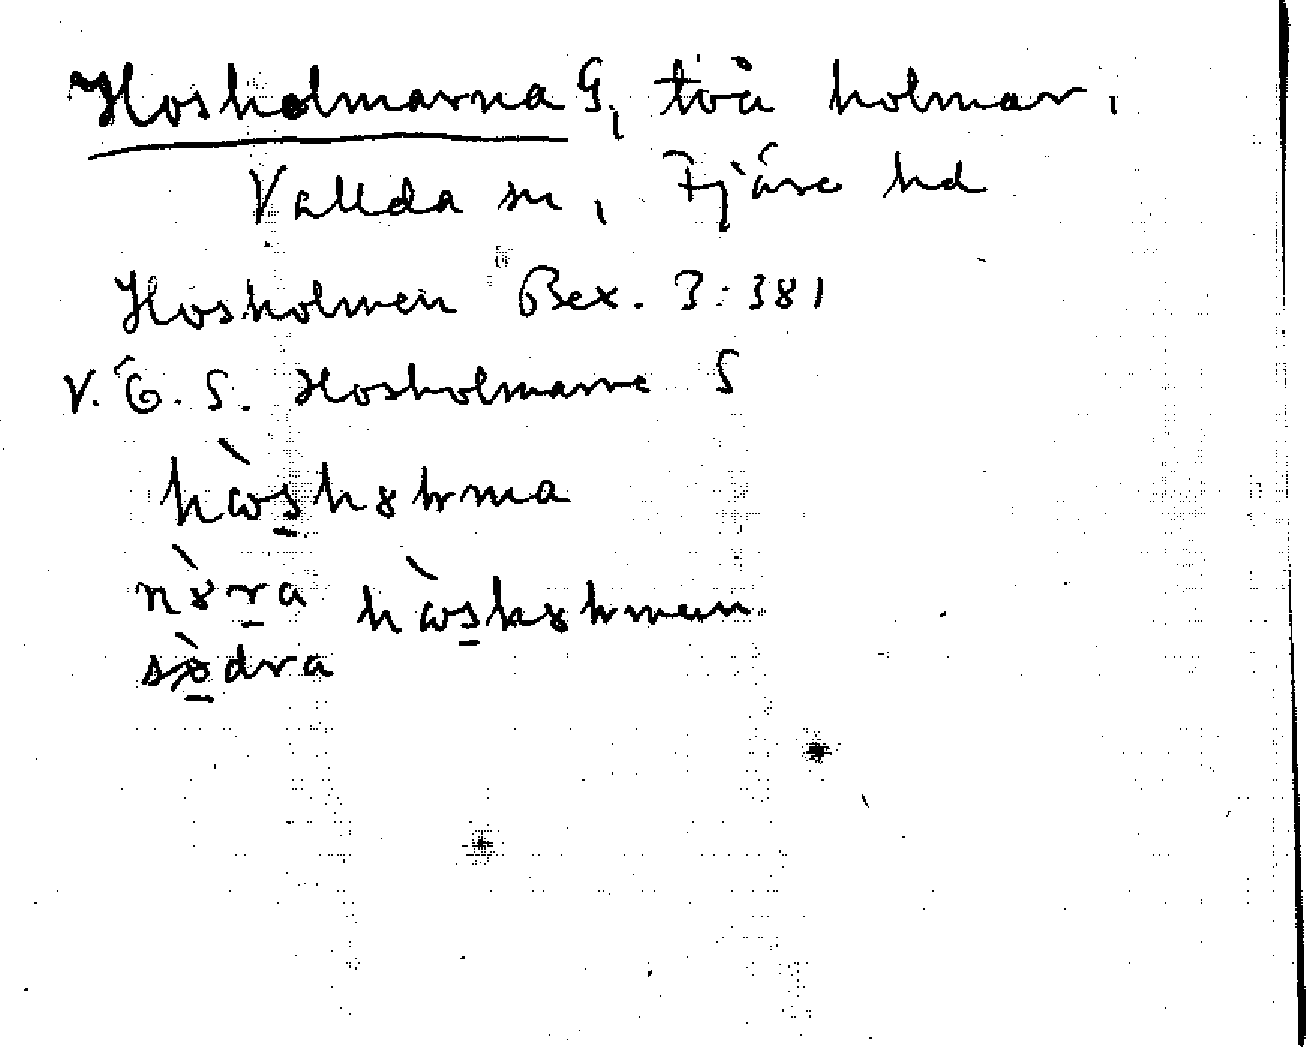 Hosholmarna G, två holmar,
Vallda sn, Fjäre hd
Hosholmen Bex. 3:381
V. Ö. S. Hosholmarne S
hòshȣɫma
nȣ̀ra hòshȣɫmen
sø̀dra